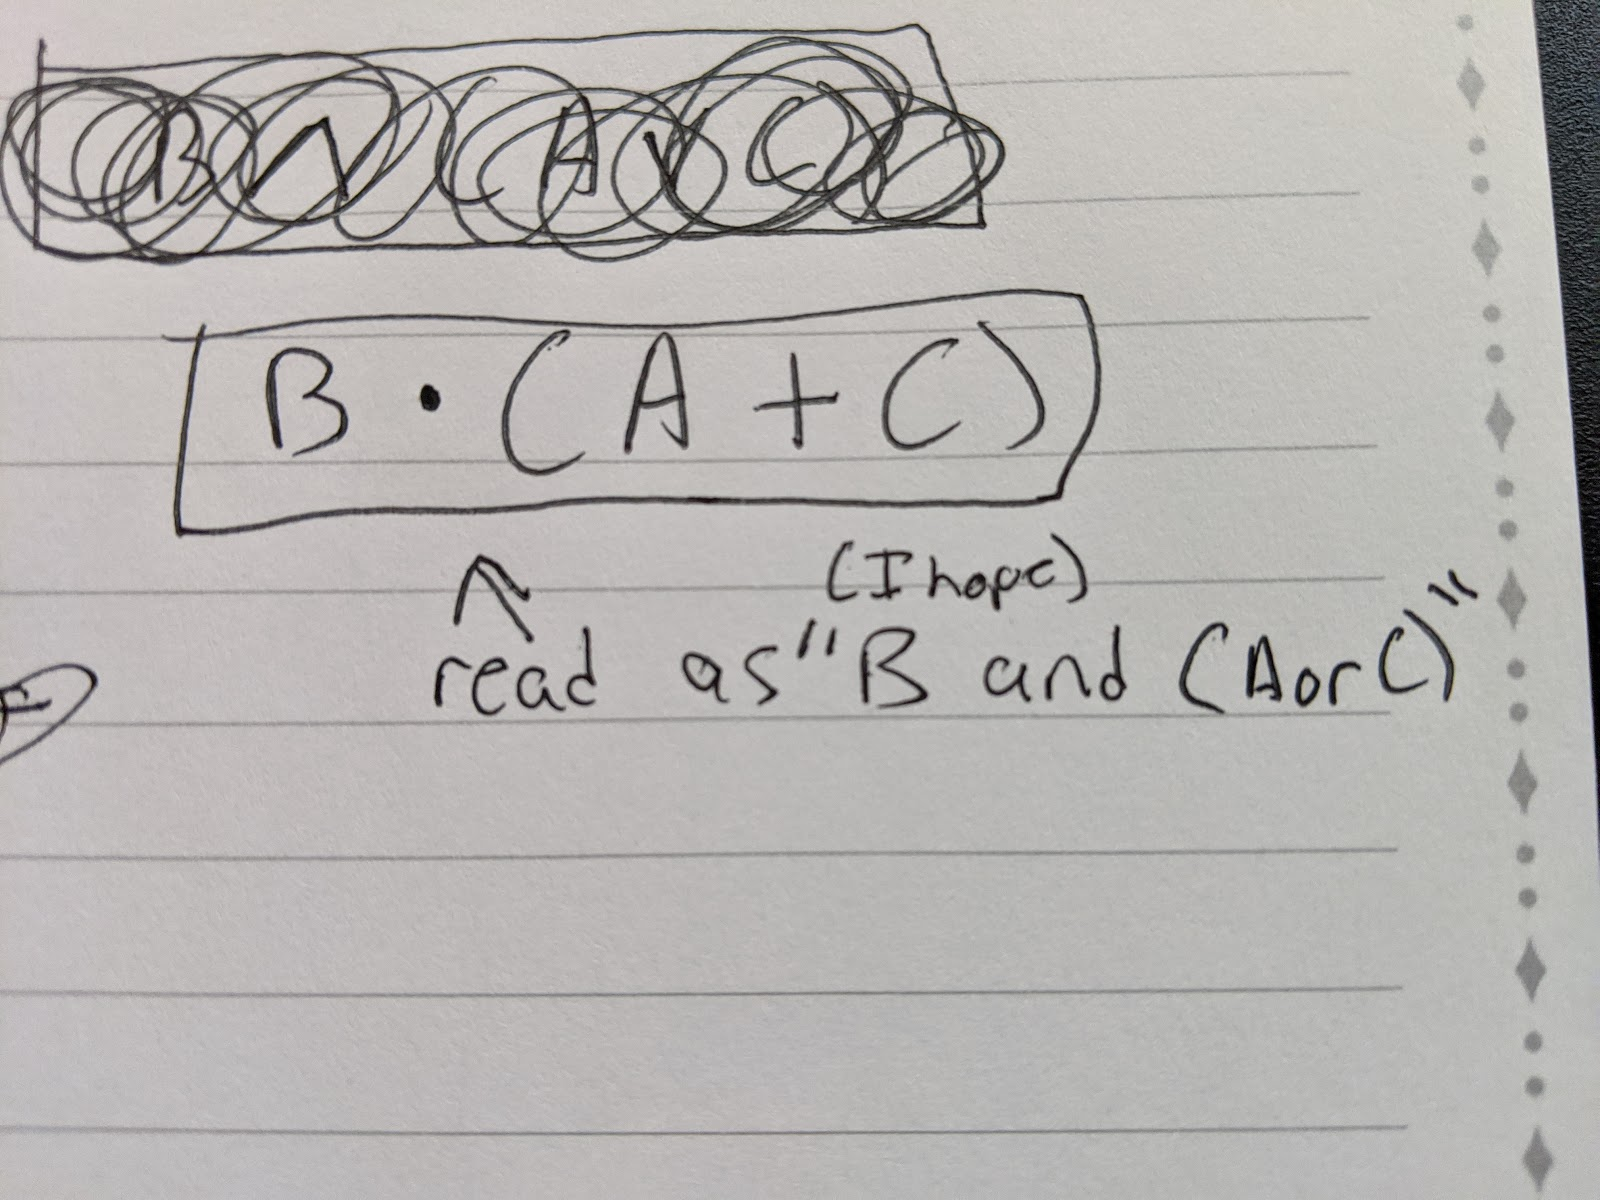 B ∧ (A ∨ C)
B • (A + C)
(I hope)
read as "B and (A or C)"